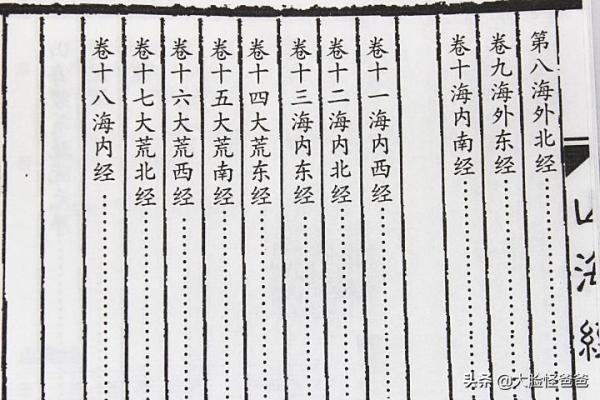 第八海外北经
卷九海外东经
卷十海内南经
卷十一海内西经
卷十二海内北经
卷十三海内东经
卷十四大荒东经
卷十五大荒南经
卷十六大荒西经
卷十七大荒北经
卷十八海内经
山海經
头条 @大脸怪爸爸